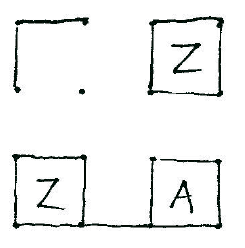 Z
Z A